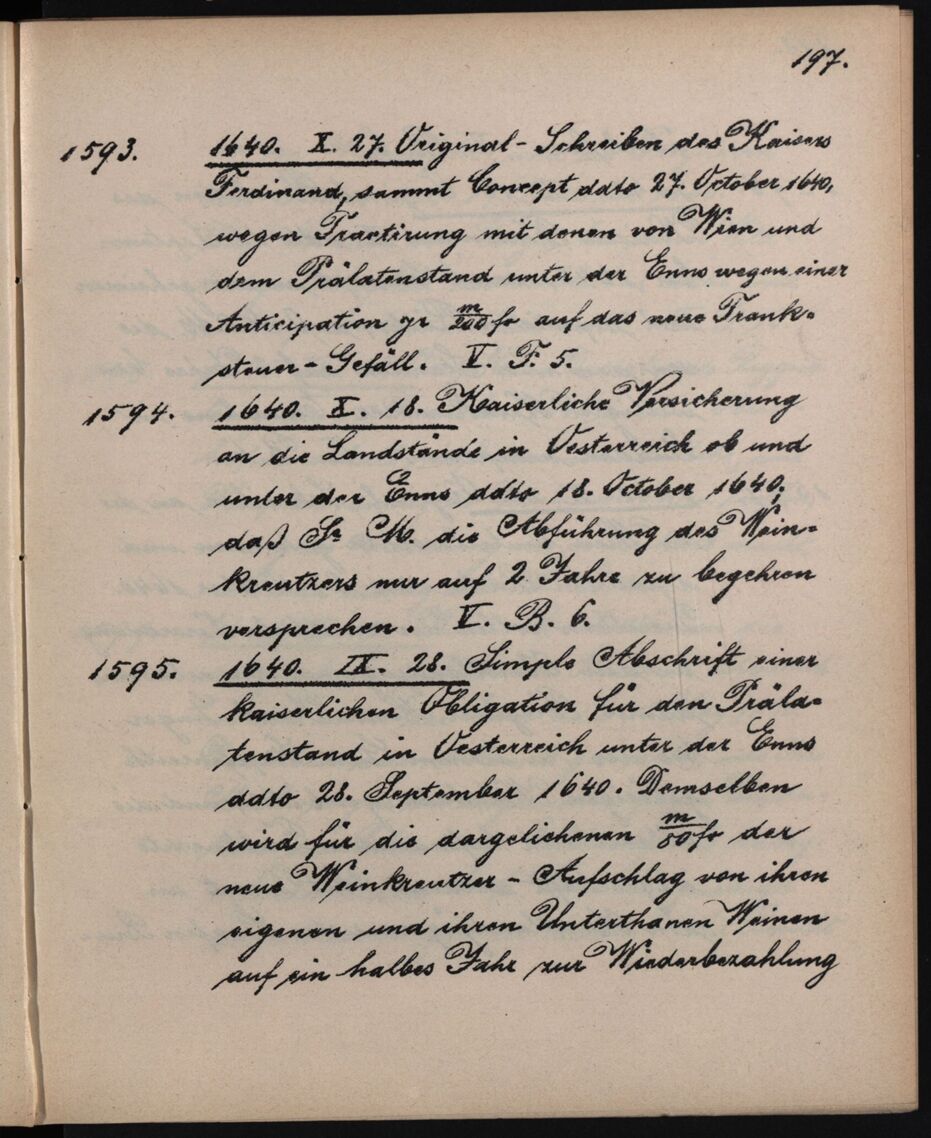 197.
1593. 1640. X. 27. Original-Schreiben des Kaisers
Ferdinand, sammt Concept ddto 27. October 1640,
wegen Tractirung mit denen von Wien und
dem Prälatenstand unter der Enns wegen einer
Anticipation pr m/200 f auf das neue Trank-
steuer-Gefäll. V. F. 5.
1594. 1640. X. 18. Kaiserliche Versicherung
an die Landstände in Oesterreich ob und
unter der Enns ddto 18. October 1640,
daß Sr M. die Abführung des Wein-
kreutzers nur auf 2 Jahre zu begehren
versprechen. V. B. 6.
1595. 1640. IX. 28. Simple Abschrift einer
kaiserlichen Obligation für den Präla-
tenstand in Oesterreich unter der Enns
ddto 28. September 1640. Demselben
wird für die dargelichenen m/80 f der
neue Weinkreutzer-Aufschlag von ihren
eigenen und ihren Unterthanen Weinen
auf ein halbes Jahr zur Wiederbezahlung